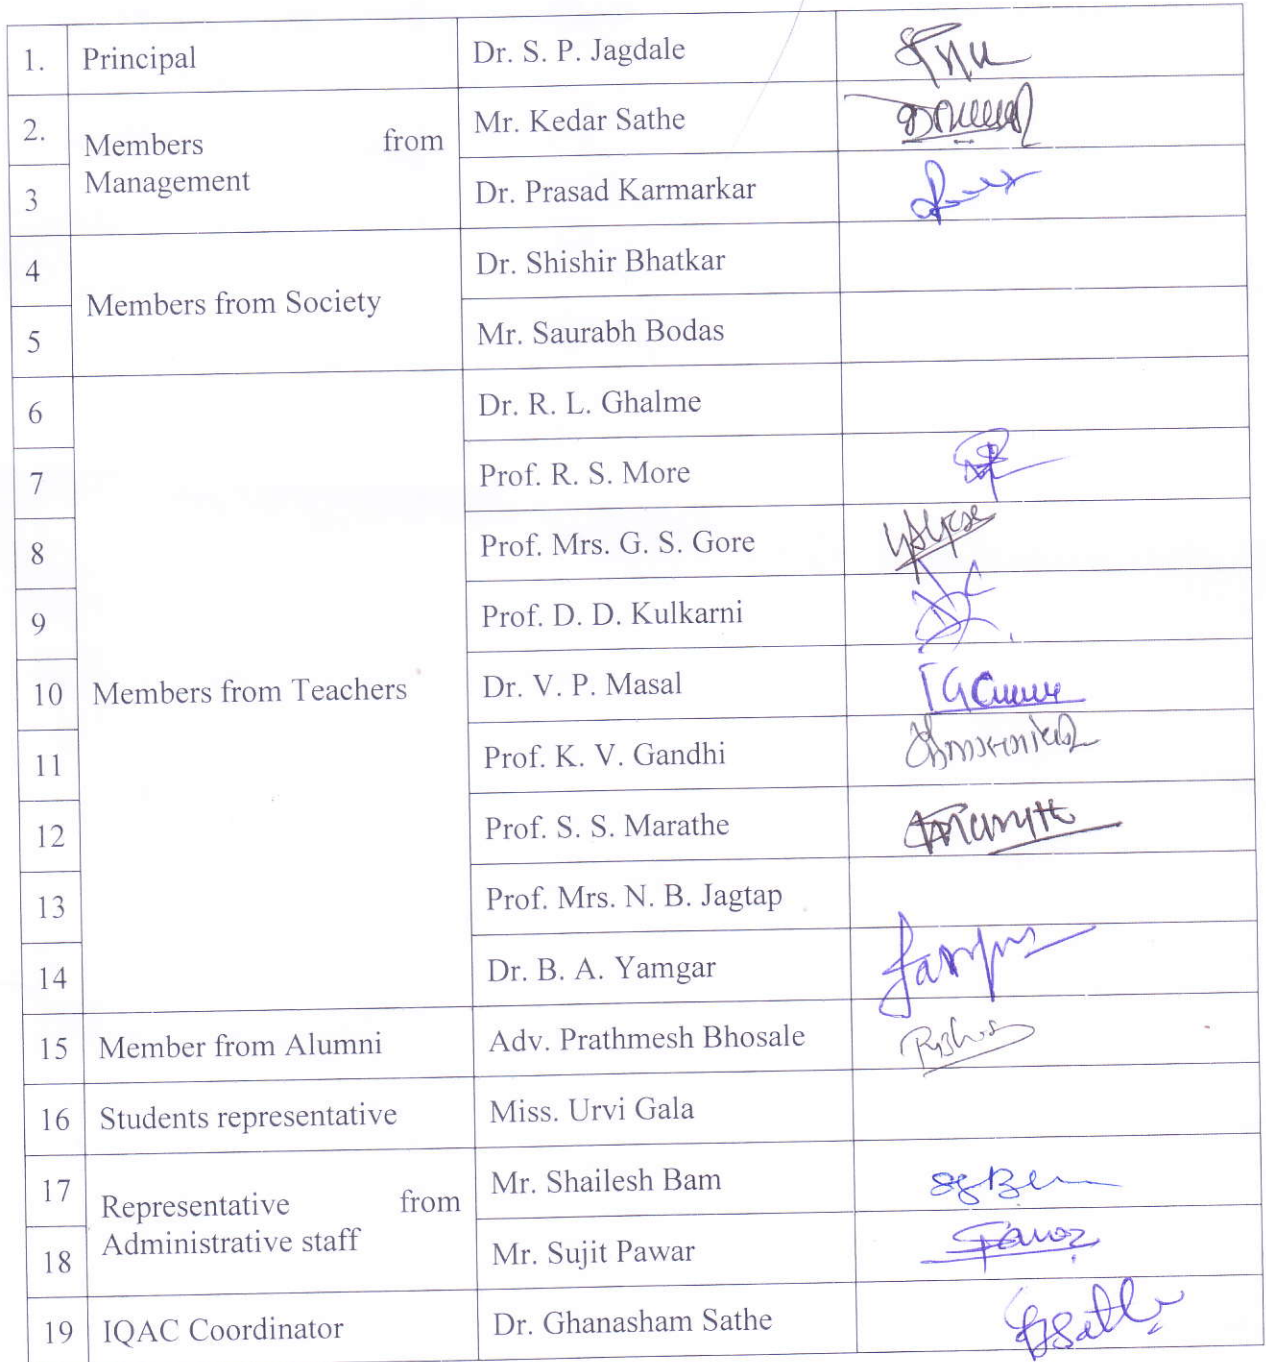 1. Principal Dr. S. P. Jagdale
2. Members from Management Mr. Kedar Sathe
3 Dr. Prasad Karmarkar
4 Members from Society Dr. Shishir Bhatkar
5 Mr. Saurabh Bodas
6 Members from Teachers Dr. R. L. Ghalme
7 Prof. R. S. More
8 Prof. Mrs. G. S. Gore
9 Prof. D. D. Kulkarni
10 Dr. V. P. Masal
11 Prof. K. V. Gandhi
12 Prof. S. S. Marathe
13 Prof. Mrs. N. B. Jagtap
14 Dr. B. A. Yamgar
15 Member from Alumni Adv. Prathmesh Bhosale
16 Students representative Miss. Urvi Gala
17 Representative from Administrative staff Mr. Shailesh Bam
18 Mr. Sujit Pawar
19 IQAC Coordinator Dr. Ghanasham Sathe